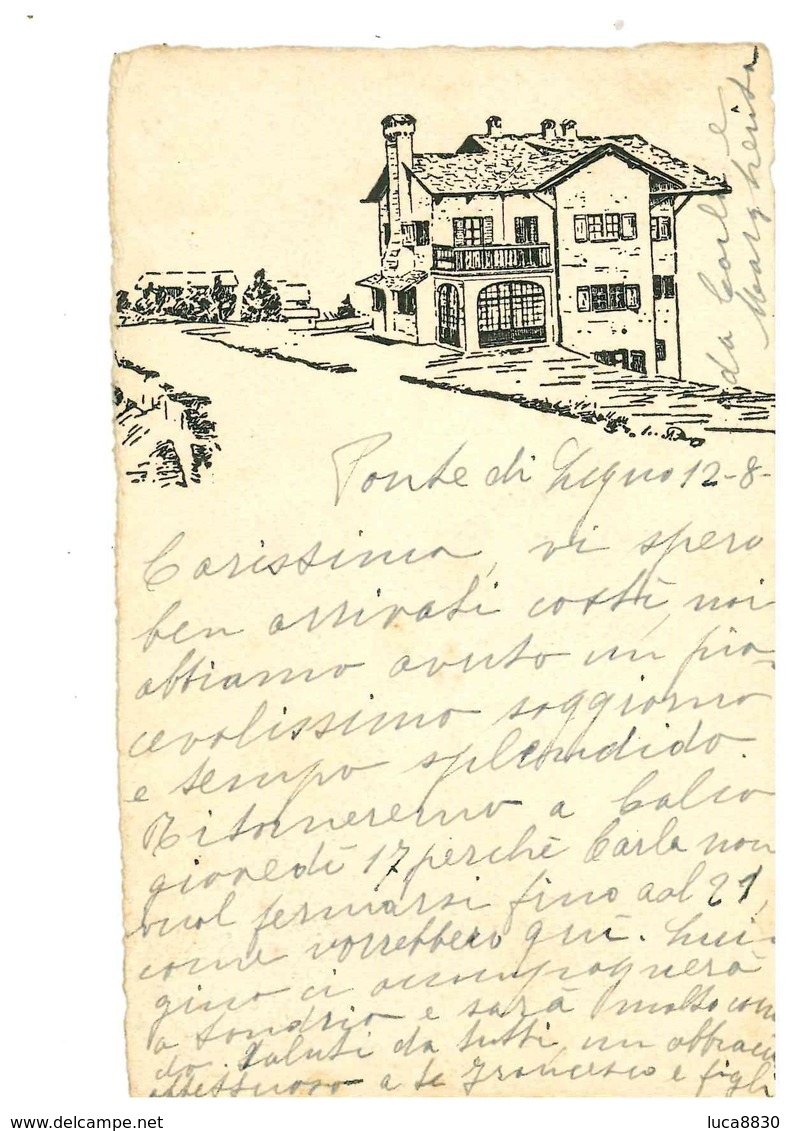 da Carla e
Margherita
Ponte di Legno 12-8-
Carissima, vi spero
ben arrivati costì, noi
abbiamo avuto un pia-
cevolissimo soggiorno
e tempo splendido.
Ritorneremo a Calcio
giovedì 17 perchè Carla non
vuol fermarsi fino aal 21,
come vorrebbero qui. Lui-
gino ci accompagnerà
a Sondrio e sarà molto como
do. Saluti da tutti, un abbracci
affettuoso a te Francesco e figli
delcampe.net
luca8830